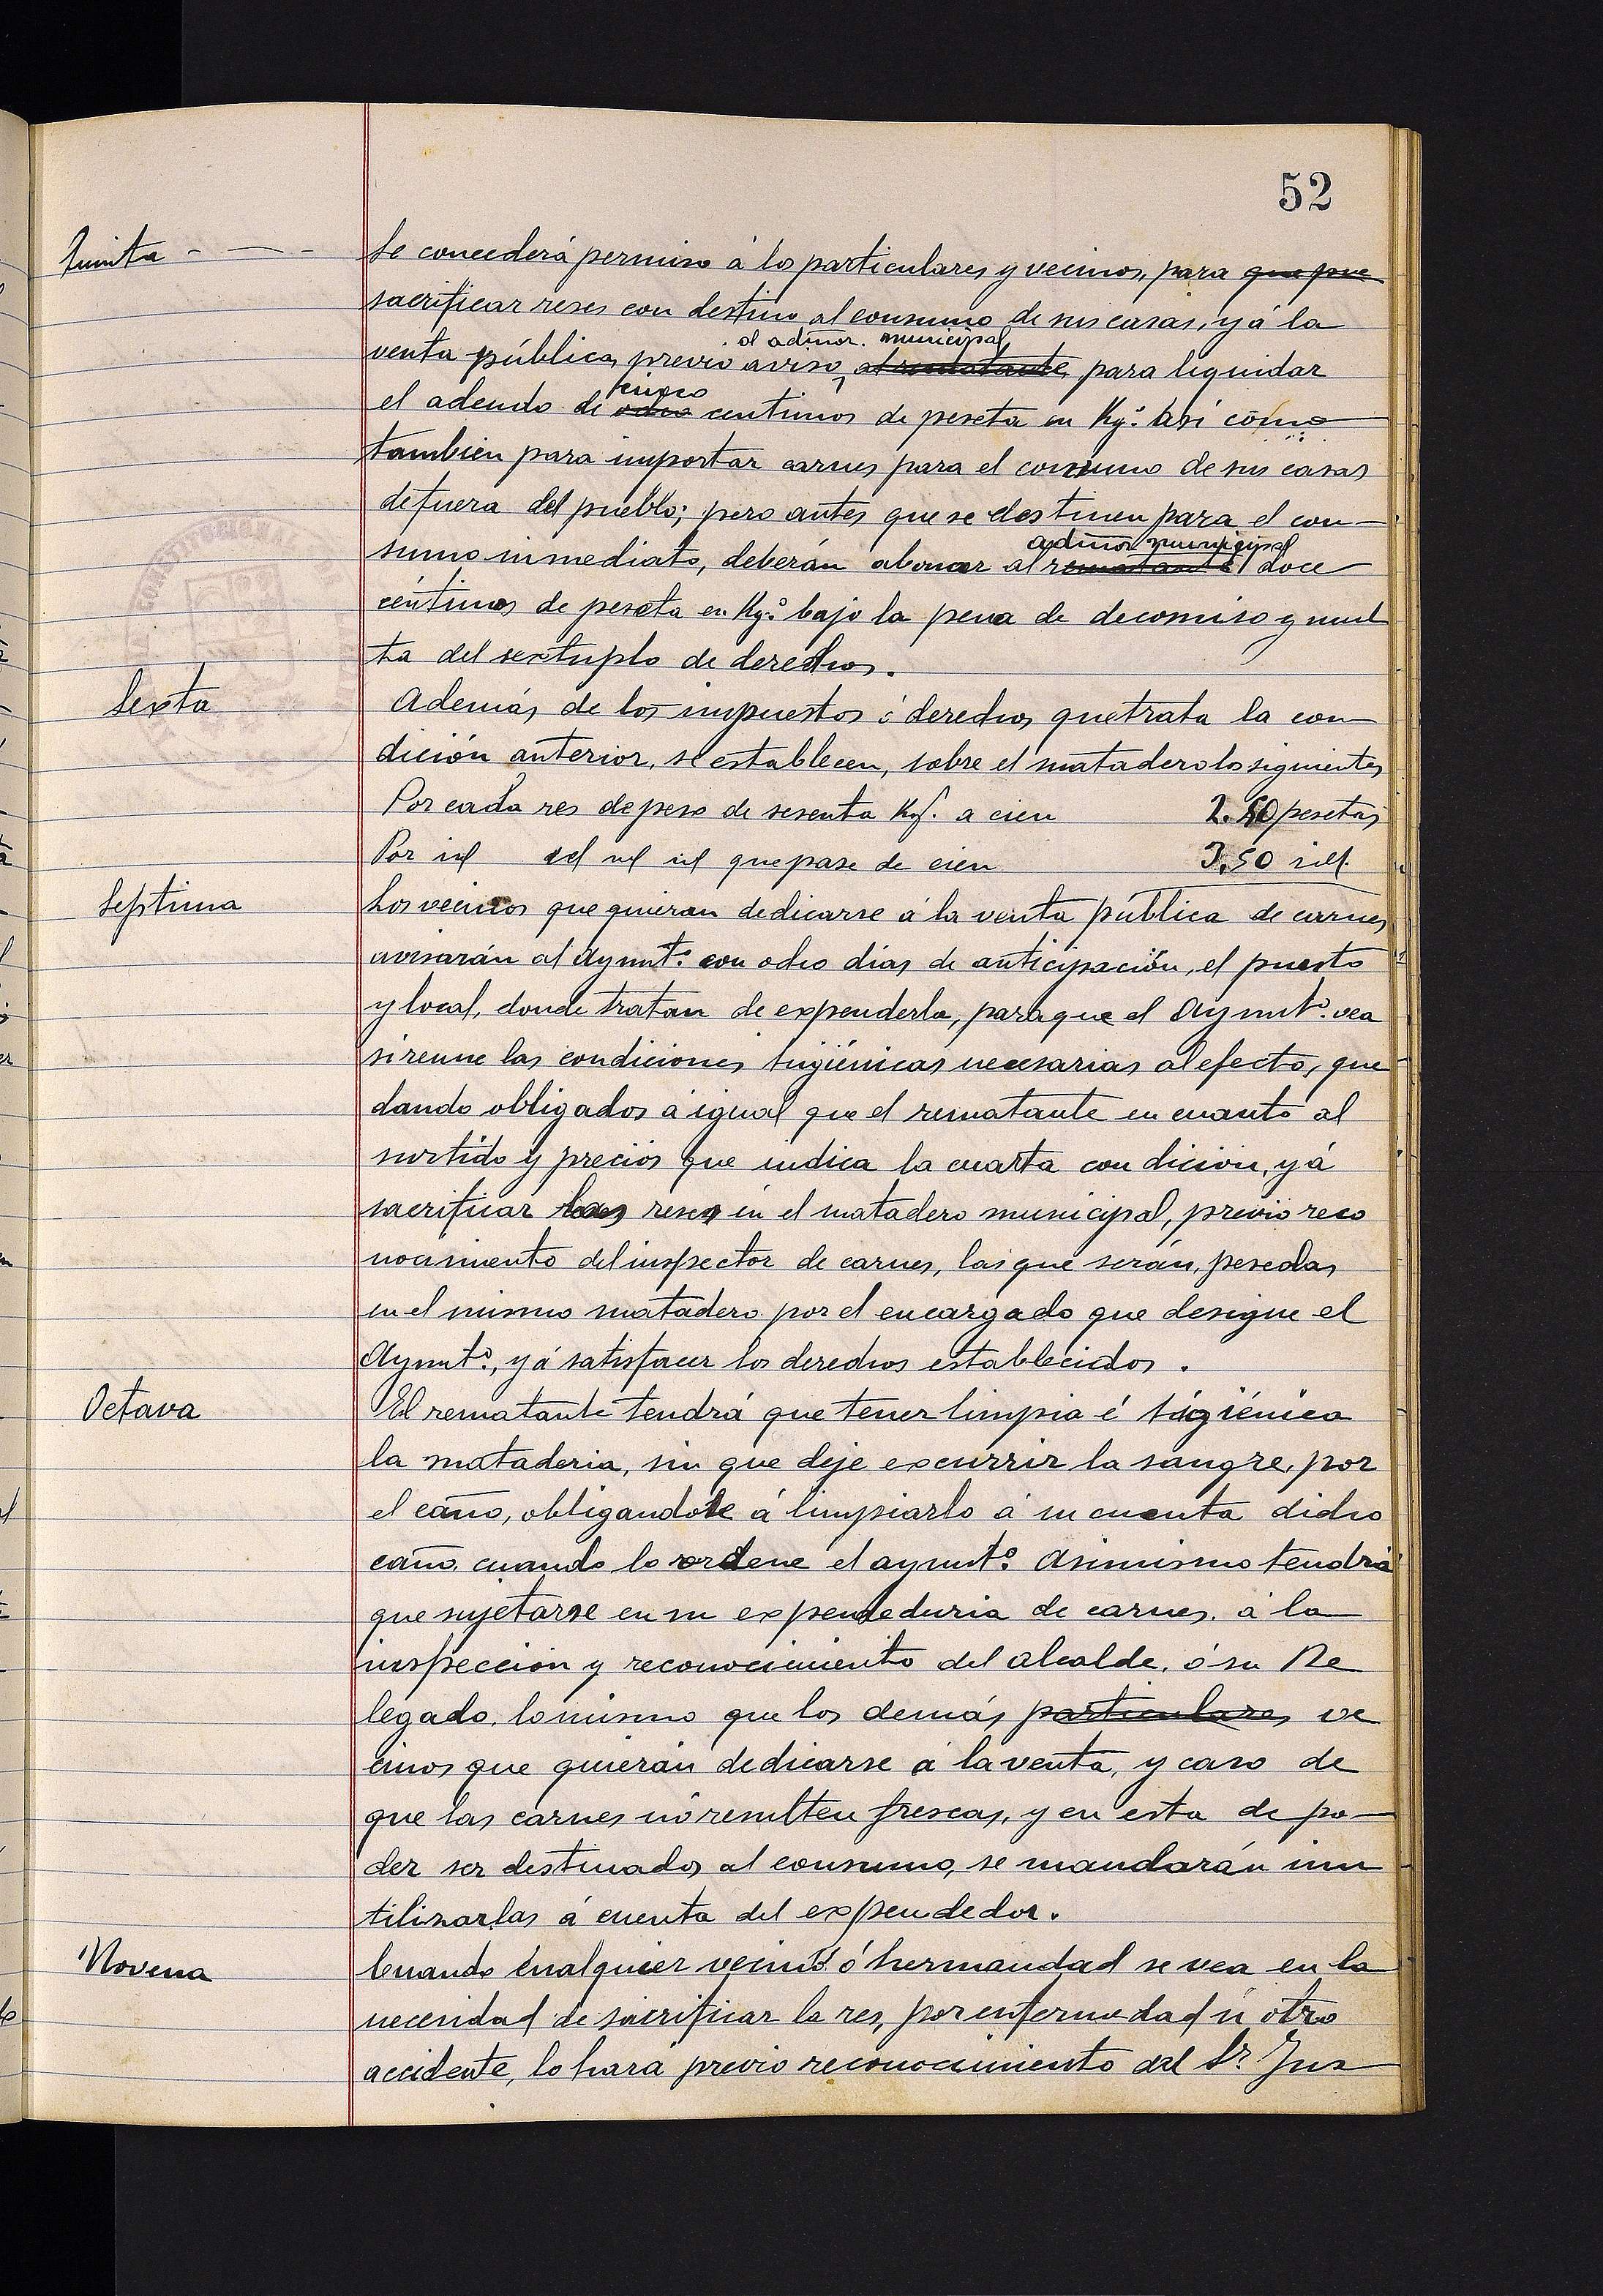 52
Quinta - — -
Se concederá permiso á los particulares y vecinos, para que pue
sacrificar reses con destino al consumo de sus casas, y á la
al admor. municipal
venta pública, previo aviso, al rematante, para liquidar
cinco
el adeudo de ocho centimos de peseta en Kg.º Así como
tambien para importar carnes para el consumo de sus casas
de fuera del pueblo; pero antes que se destinen para el con—
admor municipal
sumo inmediato, deberán abonar al rematante doce
céntimos de peseta en Kg.º bajo la pena de decomiso y mul
ta del sextuplo de derechos.
Sexta
Además de los impuestos ó derechos que trata la con
dición anterior, se establecen, sobre el matadero los siguientes
Por cada res de peso de sesenta Kgs. a cien 2.50 pesetas
Por id id id id que pase de cien 3,50 id.
Septima
Los vecinos que quieran dedicarse á la venta pública de carnes
avisarán al Aymtº. con ocho días de anticipación, el puesto
y local, donde tratan de expenderla, para que el Aymtº. vea
si reune las condiciones higiénicas necesarias al efecto, que
dando obligados a igual que el rematante en cuanto al
surtido y precios que indica la cuarta condición, y á
sacrificar las reses en el matadero municipal, previo reco
nocimiento del inspector de carnes, las que serán, pesadas
en el mismo matadero por el encargado que designe el
Aymtº., y á satisfacer los derechos establecidos.
Octava
El rematante tendrá que tener limpia é higiénica
la mataderia, sin que deje escurrir la sangre, por
el caño, obligandole á limpiarlo á su cuenta dicho
caño, cuando lo ordene el aymtº. Asimismo tendrá
que sujetarse en su expendeduria de carnes, á la
inspección y reconocimiento del alcalde, ó su De
legado, lo mismo que los demás particulares ve
cinos que quieran dedicarse á la venta, y caso de
que las carnes no resulten frescas, y en esta de po—
der ser destinados al consumo, se mandarán inu
tilizarlas á cuenta del expendedor.
Novena
Cuando cualquier vecino ó hermandad se vea en la
necesidad de sacrificar la res, por enfermedad ú otro
accidente, lo hará previo reconocimiento del Sr. Ins